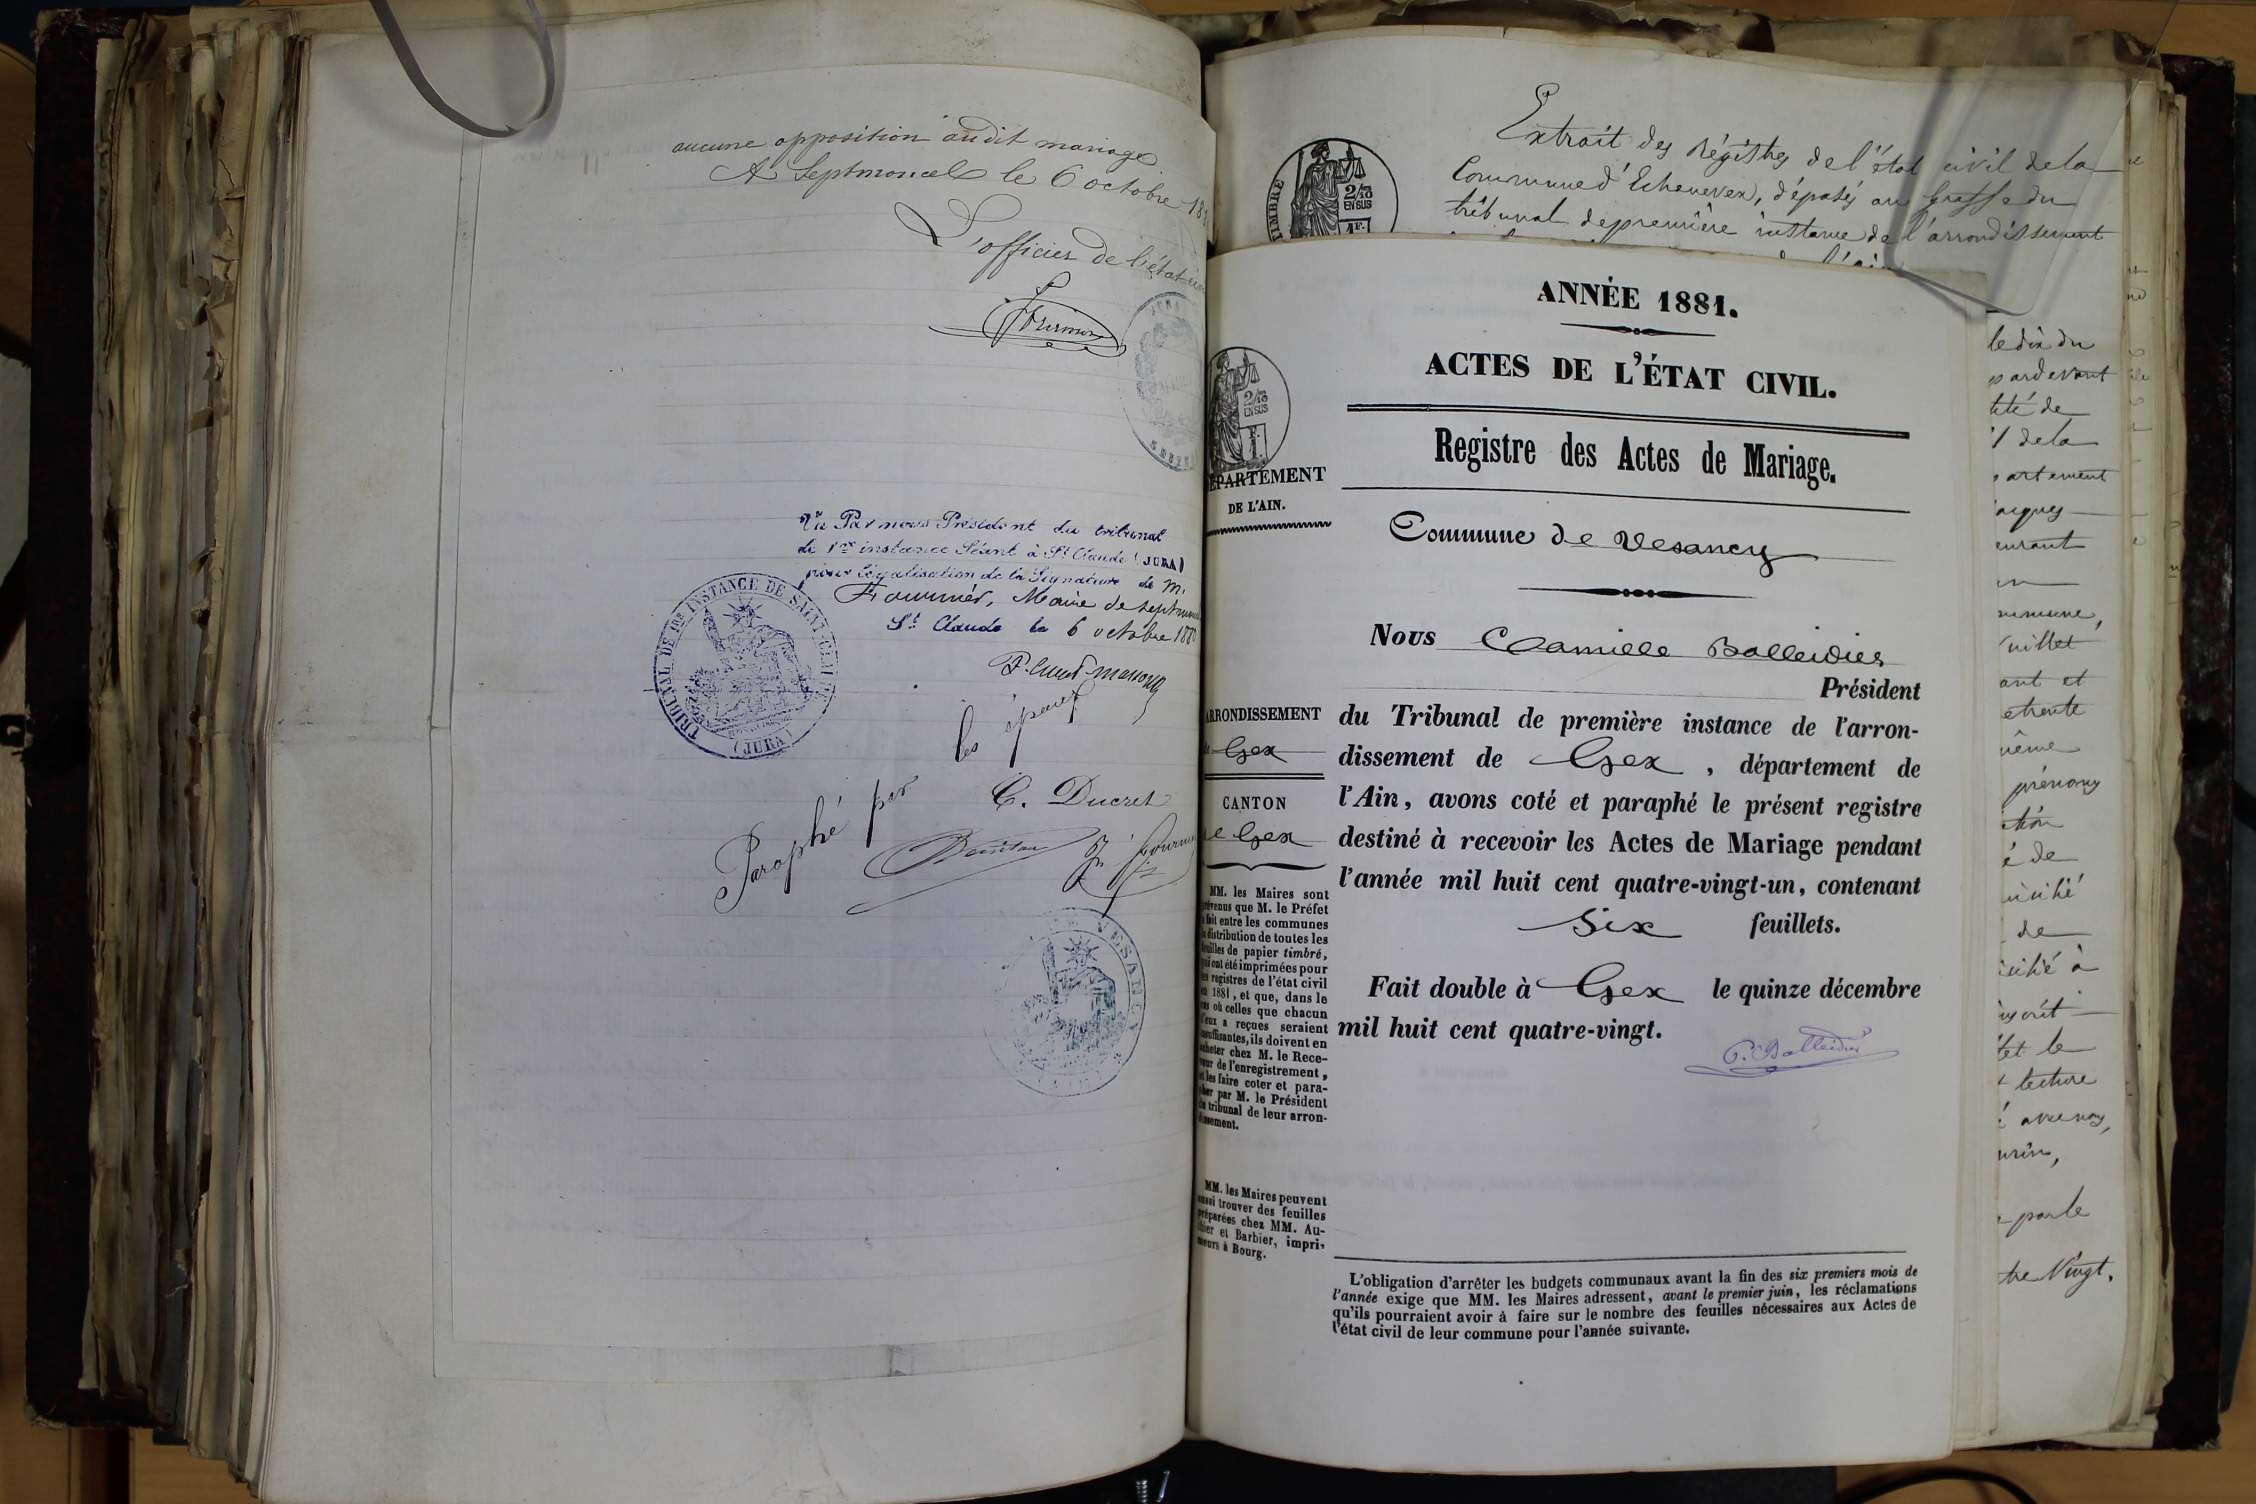 aucune opposition audit mariage
A Septmoncel le 6 octobre
L'officier de l'état
Vu Par nous Président du tribunal
de 1re instance Séant à St Claude (JURA)
pour légalisation de la Signature de M.
Fournier, Maire de
St Claude le 6 octobre
TRIBUNAL DE 1re INSTANCE DE SAINT-CLAUDE
(JURA)
les époux
Paraphé par
C. Ducret
VESANCY
Extrait des Régistres de l'état civil de la
Commune d'Echenevex, déposés au Greffe du
tribunal de première instance de l'arrondissement
TIMBRE
2/10
EN SUS
1F.
ANNÉE 1881.
ACTES DE L'ÉTAT CIVIL.
Registre des Actes de Mariage.
2/10
EN SUS
DÉPARTEMENT
DE L'AIN.
Commune de Vesancy
Nous Camille Balleidier
Président
du Tribunal de première instance de l'arron-
dissement de Gex, département de
l'Ain, avons coté et paraphé le présent registre
destiné à recevoir les Actes de Mariage pendant
l'année mil huit cent quatre-vingt-un, contenant
six feuillets.
Fait double à Gex le quinze décembre
mil huit cent quatre-vingt.
C. Balleidier
ARRONDISSEMENT
de Gex
CANTON
de Gex
MM. les Maires sont
prévenus que M. le Préfet
a fait entre les communes
la distribution de toutes les
feuilles de papier timbré,
qui ont été imprimées pour
les registres de l'état civil
en 1881, et que, dans le
cas où celles que chacun
d'eux a reçues seraient
insuffisantes, ils doivent en
acheter chez M. le Rece-
veur de l'enregistrement,
et les faire coter et para-
pher par M. le Président
du tribunal de leur arron-
dissement.
MM. les Maires peuvent
aussi trouver des feuilles
préparées chez MM. Au-
thier et Barbier, impri-
meurs à Bourg.
L'obligation d'arrêter les budgets communaux avant la fin des six premiers mois de
l'année exige que MM. les Maires adressent, avant le premier juin, les réclamations
qu'ils pourraient avoir à faire sur le nombre des feuilles nécessaires aux Actes de
l'état civil de leur commune pour l'année suivante.
le dix du
pardevant
de
de la
même
prénoms
de
de
le
lecture
par le
Vingt.